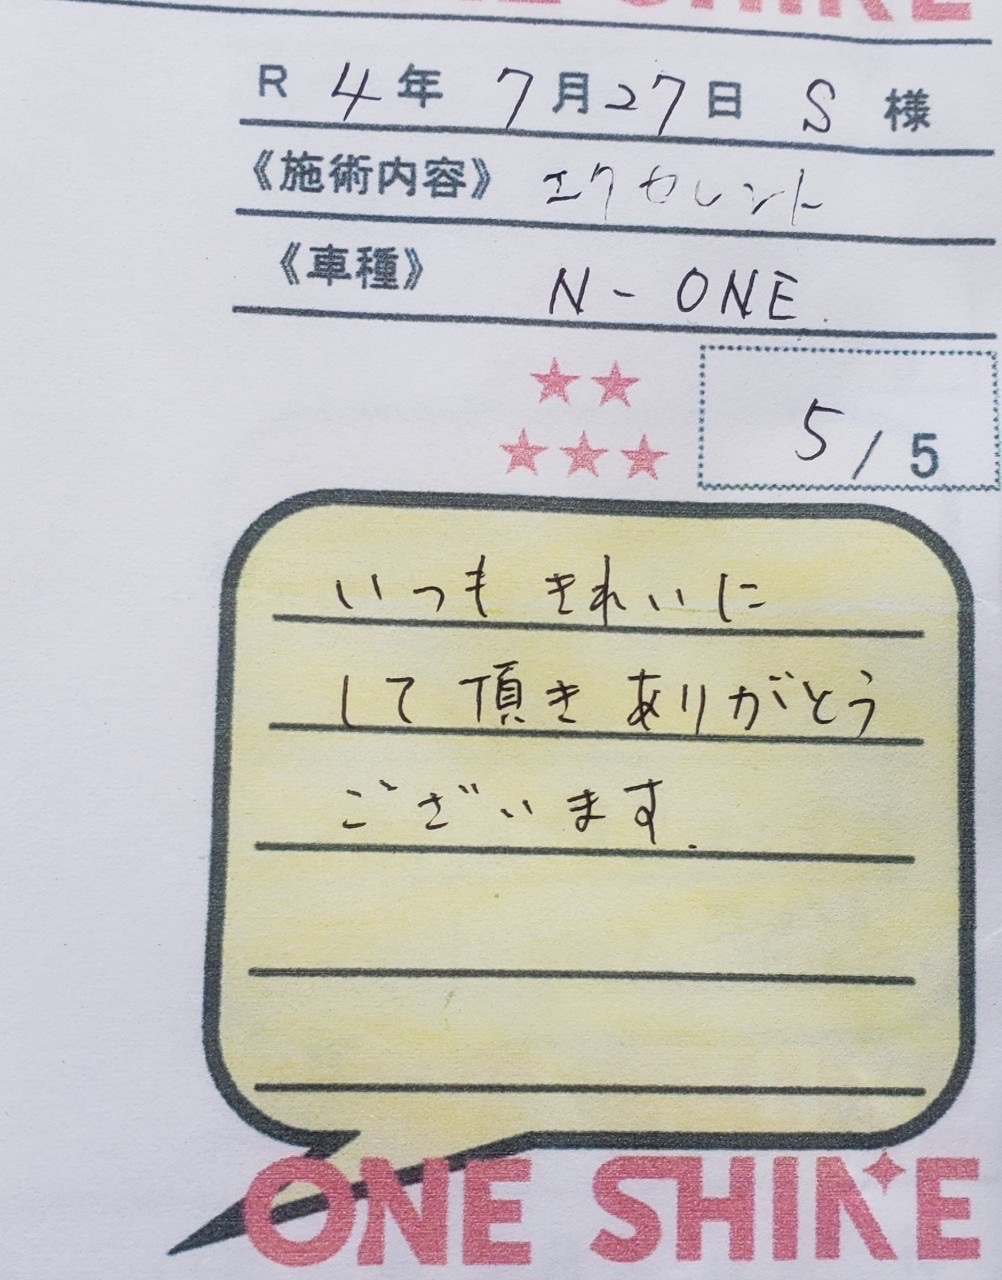 R 4年 7月27日 S 様
《施術内容》 エクセレント
《車種》 N-ONE.
5/5
いつも きれいに
して 頂き ありがとう
ございます.
ONE SHINE